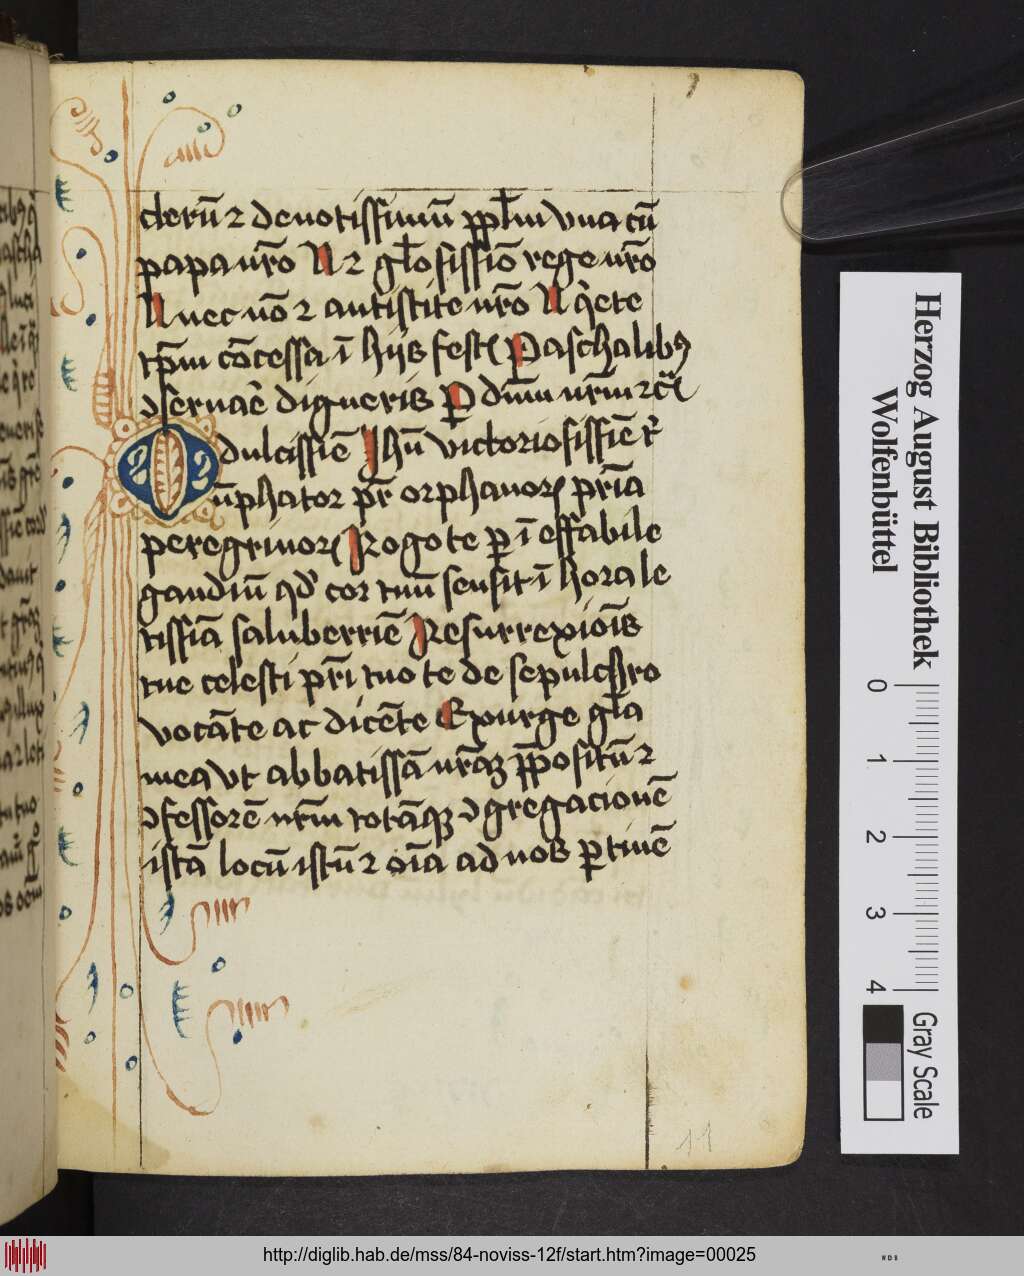 clerū ⁊ deuotissimū ppl̄m vna cū
papa nr̄o N ⁊ gl̄osissīo rege nr̄o
N nec nō ⁊ antistite nr̄o N q̄ete
tp̄m cōcessa ī hijs fest Paschalibꝯ
ↄseruāe digneris P dūm nr̄m ⁊c̄
O dulcissiē Ihū victoriosissiē t
ūphator pr̄ orphanoꝝ pr̄ia
peregrinoꝝ Rogo te ꝑ ī effabile
gaudiū qd cor tuū sensit ī hora le
tissīa saluberriē Resurrexiōis
tue celesti pr̄i tuo te de sepulchro
vocāte ac dicēte Exurge gl̄a
mea vt abbatissā nr̄aꝫ p̄positū ⁊
ↄfessorē nr̄m totāqꝫ ↄgregacionē
istā locū istū ⁊ oīa ad nos ꝑtinē
11
Herzog August Bibliothek
Wolfenbüttel
0 1 2 3 4
Gray Scale
http://diglib.hab.de/mss/84-noviss-12f/start.htm?image=00025